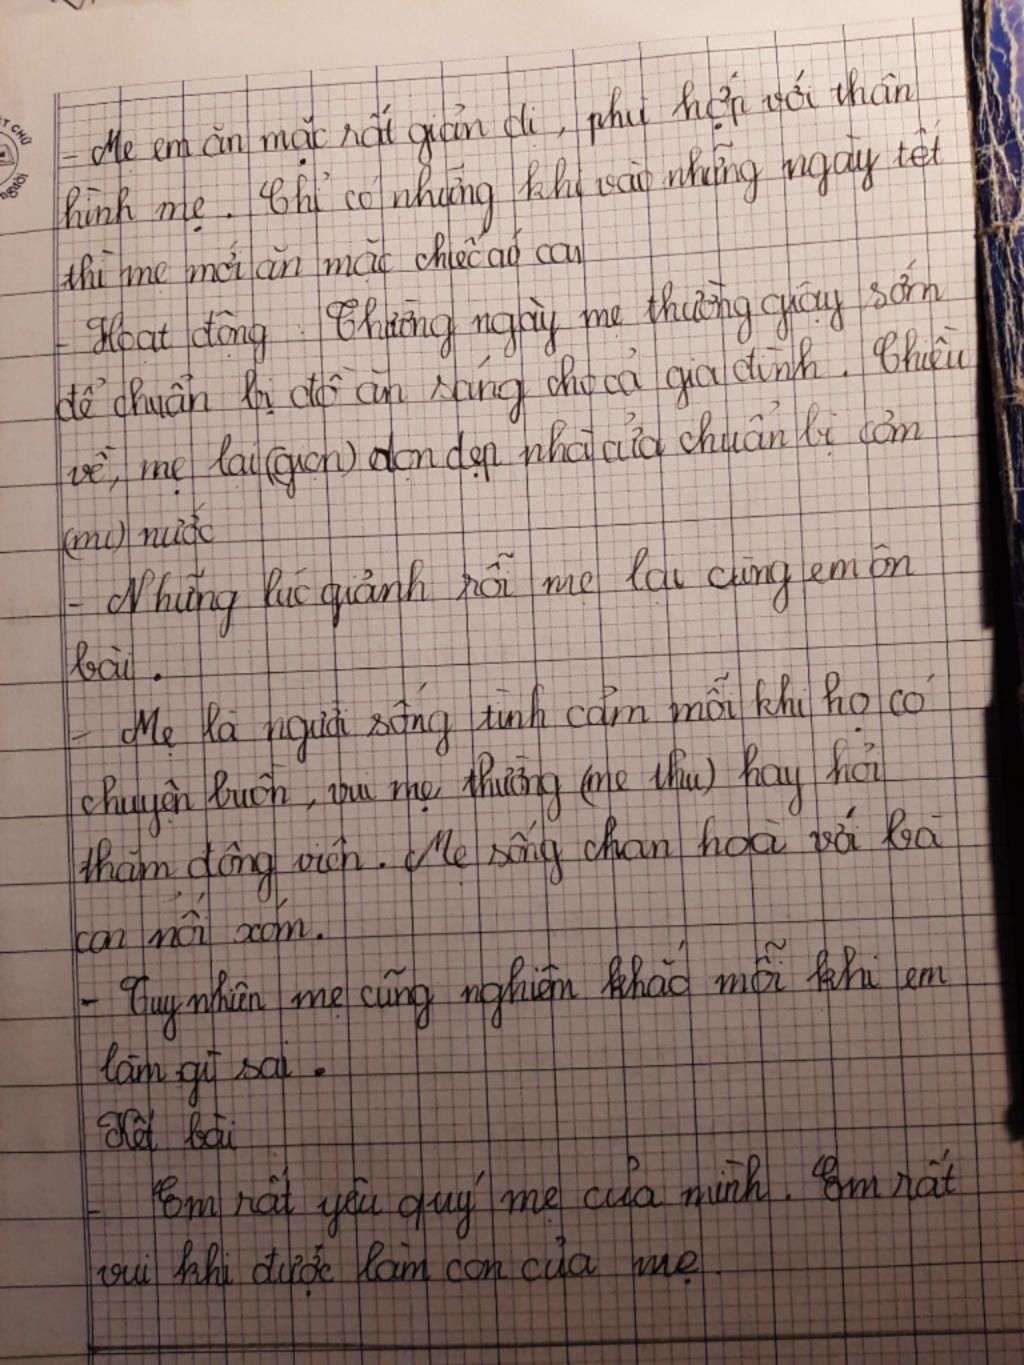 T CHỮ
NGƯỜI
- Mẹ em ăn mặc rất giản dị, phù hợp với thân
hình mẹ. Chỉ có những khi vào những ngày tết
thì mẹ mới ăn mặc chiếc áo
- Hoạt động. Thường ngày mẹ thường giậy sớm
để chuẩn bị đồ ăn sáng cho cả gia đình. Chiều
về, mẹ lại (giọn) dọn dẹp nhà cửa chuẩn bị cơm
(mc) nước
- Những lúc giảnh rỗi mẹ lại cùng em ôn
bài.
- Mẹ là người sống tình cảm mỗi khi họ có
chuyện buồn, vui mẹ thường (mẹ thu) hay hỏi
thăm động viên. Mẹ sống chan hoà với bà
con nối xóm.
- Tuy nhiên mẹ cũng nghiêm khắc mỗi khi em
làm gì sai.
Kết bài
- Em rất yêu quý mẹ của mình. Em rất
vui khi được làm con của mẹ.